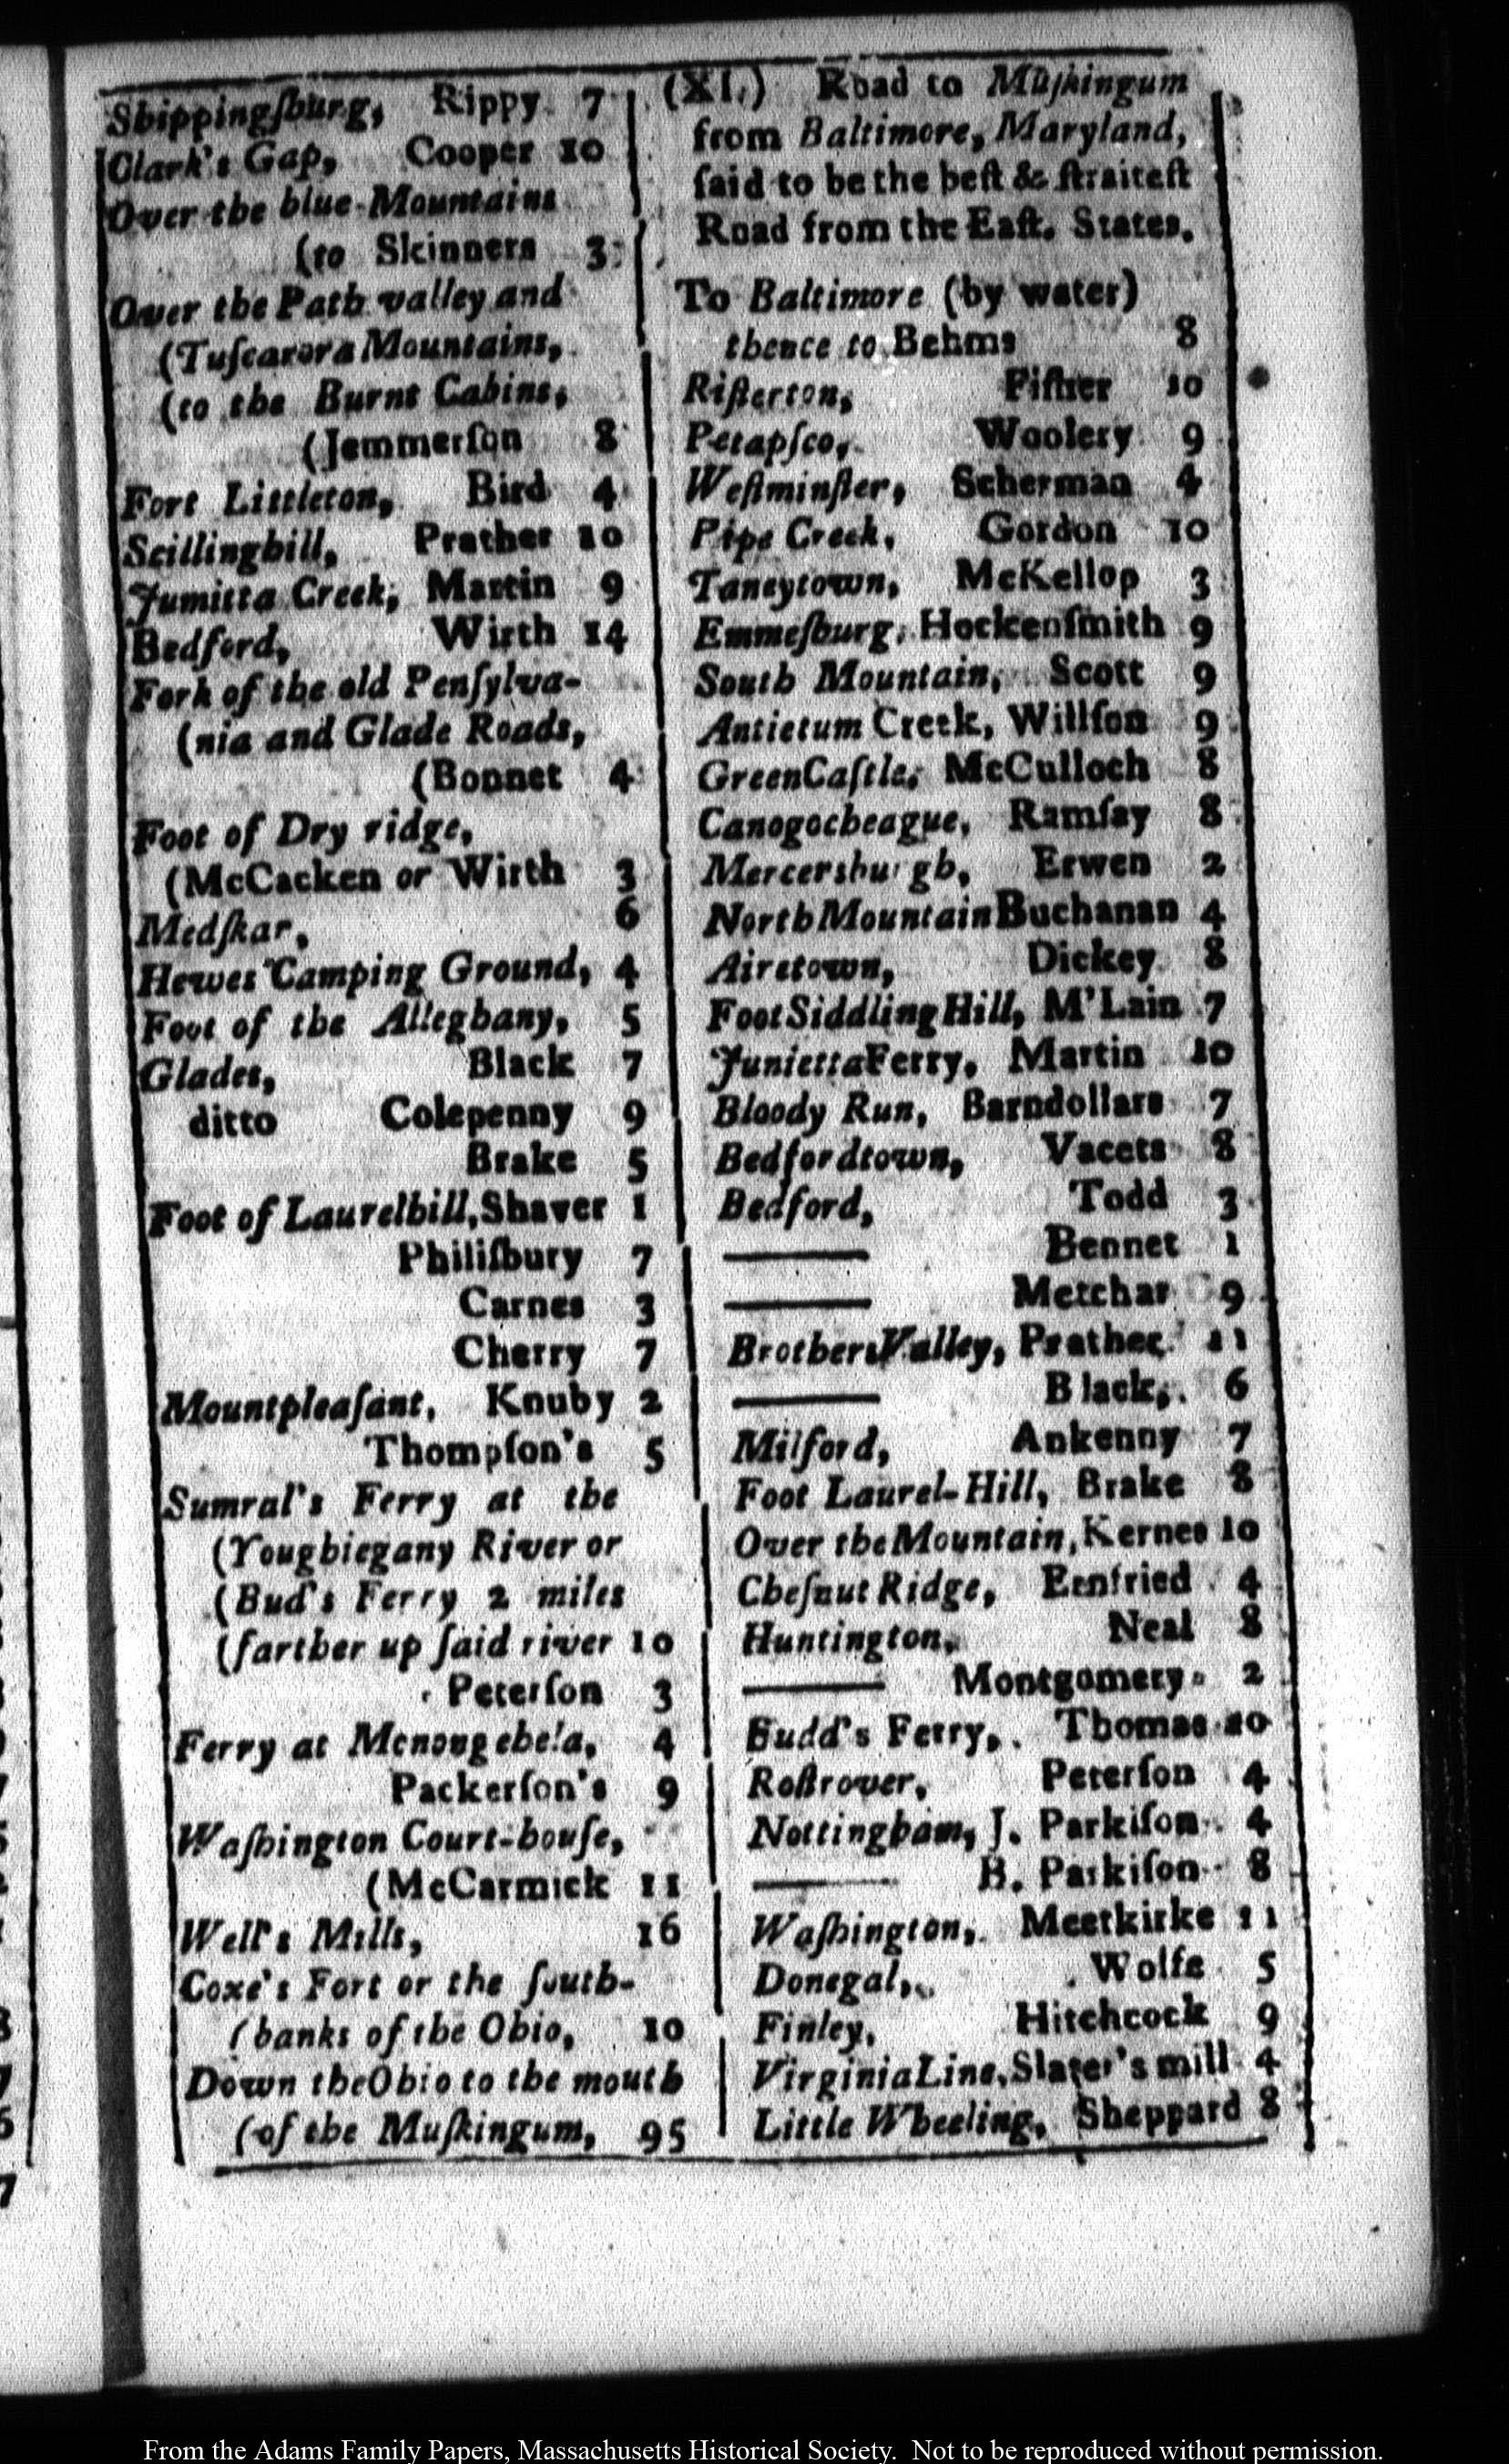 Shippingſburg, Rippy 7
Clark's Gap, Cooper 10
Over the blue Mountains
(to Skinners 3
Over the Path valley and
(Tuſcarora Mountains,
(to the Burnt Cabins,
(Jemmerſon 8
Fort Littleton, Bird 4
Scillinghill, Prather 10
Jumitta Creek, Martin 9
Bedford, Wirth 14
Fork of the old Penſylva-
(nia and Glade Roads,
(Bonnet 4
Foot of Dry ridge,
(McCacken or Wirth 3
Medſkar, 6
Hewes Camping Ground, 4
Foot of the Alleghany, 5
Glades, Black 7
ditto Colepenny 9
Brake 5
Foot of Laurelhill, Shaver 1
Philiſbury 7
Carnes 3
Cherry 7
Mountpleaſant, Knuby 2
Thompſon's 5
Sumral's Ferry at the
(Youghiegany River or
(Bud's Ferry 2 miles
(farther up ſaid river 10
Peterſon 3
Ferry at Monongehela, 4
Packerſon's 9
Waſhington Court-houſe,
(McCarmick 11
Well's Mills, 16
Coxe's Fort or the ſouth-
(banks of the Ohio, 10
Down the Ohio to the mouth
(of the Muſkingum, 95
(XI.) Road to Muſkingum
from Baltimore, Maryland,
ſaid to be the beſt & ſtraiteſt
Road from the Eaſt. States.
To Baltimore (by water)
thence to Behms 8
Riſterton, Fiſher 10
Petapſco, Woolery 9
Weſtminſter, Scherman 4
Pipe Creek, Gordon 10
Taneytown, McKellop 3
Emmeſburg, Hockenſmith 9
South Mountain, Scott 9
Antietum Creek, Willſon 9
Green Caſtle, McCulloch 8
Canogocheague, Ramſay 8
Mercersburgh, Erwen 2
North Mountain Buchanan 4
Airetown, Dickey 8
Foot Siddling Hill, M'Lain 7
Junietta Ferry, Martin 10
Bloody Run, Barndollars 7
Bedfordtown, Vacets 8
Bedford, Todd 3
—— Bennet 1
—— Metchar 9
Brothers Valley, Prather 11
—— Black, 6
Milford, Ankenny 7
Foot Laurel-Hill, Brake 8
Over the Mountain, Kernes 10
Cheſnut Ridge, Eenfried 4
Huntington, Neal 8
—— Montgomery 2
Budd's Ferry, Thomas 10
Roſtrover, Peterſon 4
Nottingham, J. Parkiſon 4
—— B. Parkiſon 8
Waſhington, Meetkirke 11
Donegal, Wolfe 5
Finley, Hitchcock 9
Virginia Line, Slater's mill 4
Little Wheeling, Sheppard 8
From the Adams Family Papers, Massachusetts Historical Society. Not to be reproduced without permission.